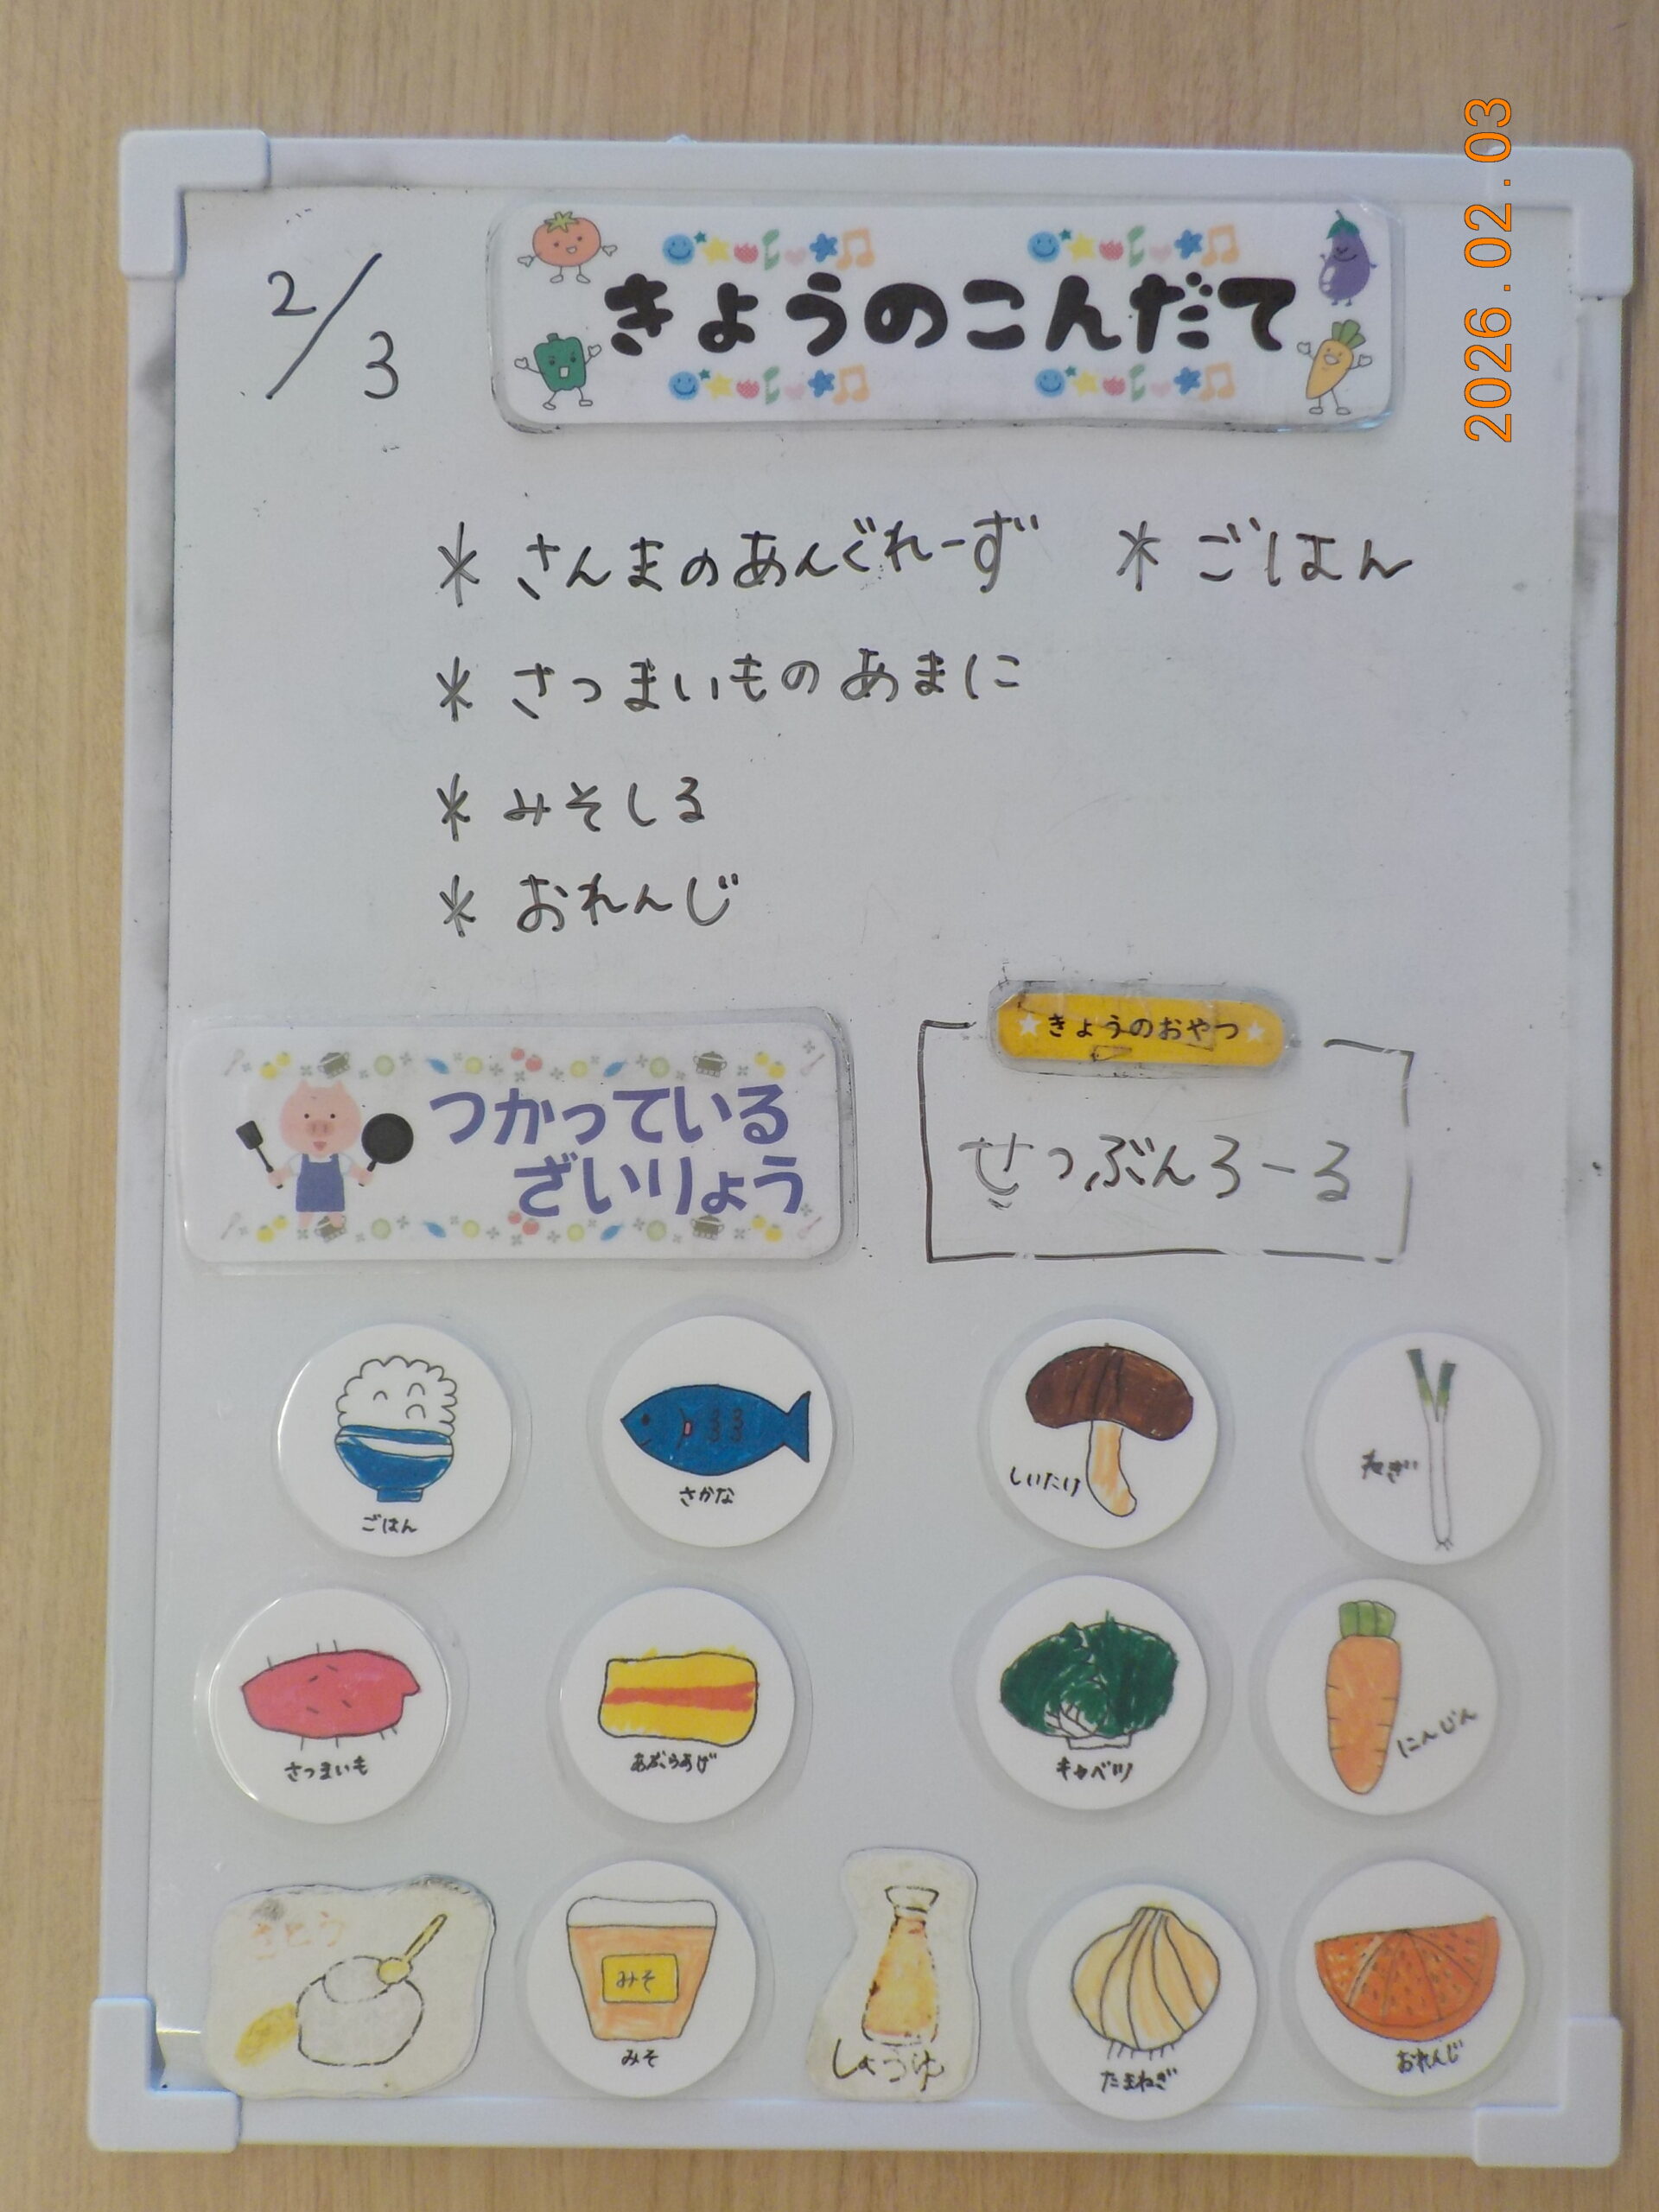 2026.02.03
2/3
きょうのこんだて
* さんまのあんぐれーず * ごはん
* さつまいものあまに
* みそしる
* おれんじ
きょうのおやつ
せつぶんろーる
つかっている
ざいりょう
ごはん
さかな
しいたけ
ねぎ
さつまいも
あぶらあげ
キャベツ
にんじん
さとう
みそ
みそ
しょうゆ
たまねぎ
おれんじ